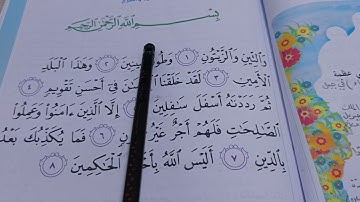 بِسْمِ اللَّهِ الرَّحْمَٰنِ الرَّحِيمِ
وَالتِّينِ وَالزَّيْتُونِ ١ وَطُورِ سِينِينَ ٢ وَهَٰذَا الْبَلَدِ
الْأَمِينِ ٣ لَقَدْ خَلَقْنَا فِي أَحْسَنِ تَقْوِيمٍ ٤
ثُمَّ رَدَدْنَاهُ أَسْفَلَ سَافِلِينَ إِلَّا الَّذِينَ ءَامَنُوا وَعَمِلُوا
الصَّالِحَاتِ فَلَهُمْ أَجْرٌ غَيْرُ ٦ فَمَا يُكَذِّبُكَ بَعْدُ
بِالدِّينِ ٧ أَلَيْسَ اللَّهُ الْحَاكِمِينَ ٨